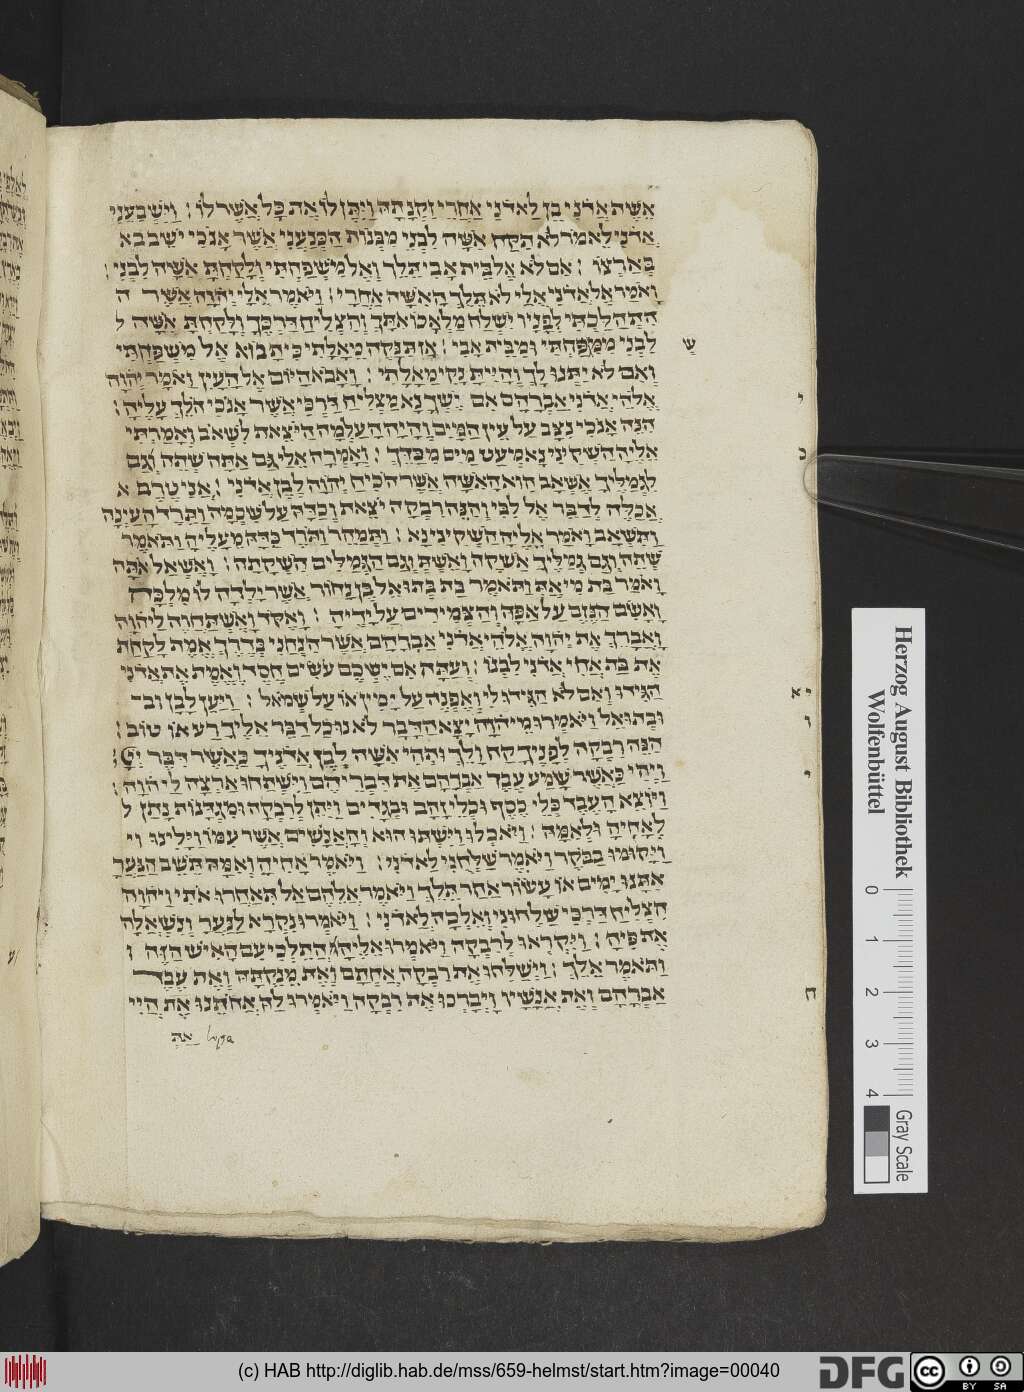 אשת אדני בן לאדני אחרי זקנתה ויתן לו את כל אשר לו : וישבעני
אדני לאמר לא תקח אשה לבני מבנות הכנעני אשר אנכי ישב בא
בארצו : אם לא אל בית אבי תלך ואל משפחתי ולקחת אשה לבני :
ואמר אל אדני אלי לא תלך האשה אחרי : ויאמר אלי יהוה אשר ה
התהלכתי לפניו ישלח מלאכו אתך והצליח דרכך ולקחת אשה ל
לבני ממשפחתי ומבית אבי : אז תנקה מאלתי כי תבוא אל משפחתי
ואם לא יתנו לך והיית נקי מאלתי : ואבא היום אל העין ואמר יהוה
אלהי אדני אברהם אם ישך נא מצליח דרכי אשר אנכי הלך עליה :
הנה אנכי נצב על עין המים והיה העלמה היצאת לשאב ואמרתי
אליה השקיני נא מעט מים מכדך : ואמרה אלי גם אתה שתה וגם
לגמליך אשאב הוא האשה אשר הכיח יהוה לבן אדני : אני טרם א
אכלה לדבר אל לבי והנה רבקה יצאת וכדה על שכמה ותרד העינה
ותשאב ואמר אליה השקיני נא : ותמהר ותרד כדה מעליה ותאמר
שתה וגם גמליך אשקה ואשת וגם הגמלים השקתה : ואשאל אתה
ואמר בת מי את ותאמר בת בתואל בן נחור אשר ילדה לו מלכה
ואשם הנזם על אפה והצמידים על ידיה : ואקד ואשתחוה ליהוה
ואברך את יהוה אלהי אדני אברהם אשר הנחני בדרך אמת לקחת
את בת אחי אדני לבנו : ועתה אם ישכם עשים חסד ואמת את אדני
הגידו ואם לא הגידו לי ואפנה על ימין או על שמאל : ויען לבן וב
ובתואל ויאמרו מיהוה יצא הדבר לא נוכל דבר אליך רע או טוב :
הנה רבקה לפניך קח ולך ותהי אשה לבן אדניך כאשר דבר יי :
ויהי כאשר שמע עבד אברהם את דבריהם וישתחו ארצה ליהוה :
ויוצא העבד כלי כסף וכלי זהב ובגדים ויתן לרבקה ומגדנות נתן ל
לאחיה ולאמה : ויאכלו וישתו הוא והאנשים אשר עמו וילינו וי
ויקומו בבקר ויאמר שלחני לאדני : ויאמר אחיה ואמה תשב הנער
אתנו ימים או עשור אחר תלך ויאמר אלהם אל תאחרו אתי ויהוה
הצליח דרכי שלחוני ואלכה לאדני : ויאמרו נקרא לנער ונשאלה
את פיה : ויקראו לרבקה ויאמרו אליה התלכי עם האיש הזה :
ותאמר אלך : וישלחו את רבקה אחתם ואת מנקתה ואת עבד
אברהם ואת אנשיו ויברכו את רבקה ויאמרו לה אחתנו את היי
את
ש
י
כ
י א
ו
י
ח
Herzog August Bibliothek
Wolfenbüttel
0 1 2 3 4
Gray Scale
(c) HAB http://diglib.hab.de/mss/659-helmst/start.htm?image=00040
DFG
cc BY SA